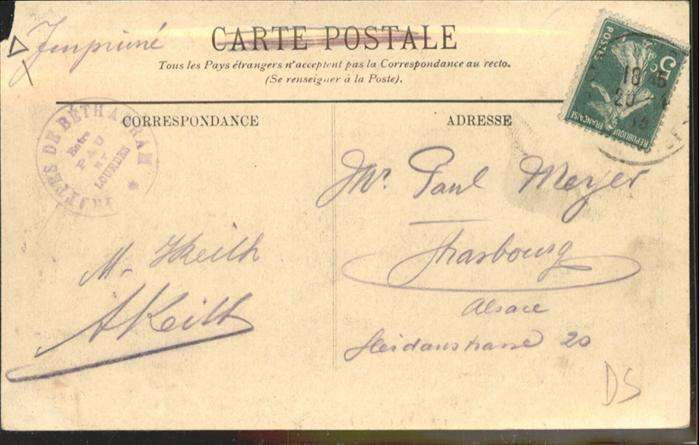 Imprimé
CARTE POSTALE
Tous les Pays étrangers n'acceptent pas la Correspondance au recto.
(Se renseigner à la Poste).
CORRESPONDANCE
ADRESSE
GROTTES DE BÉTHARRAM
Entre
PAU
ET
LOURDES
POSTES
5c
REPUBLIQUE FRANÇAISE
18 15
20
Mr. Paul Meyer
Strasbourg
Alsace
Sleidanstrasse 20
M. Keith
A Keith
DS